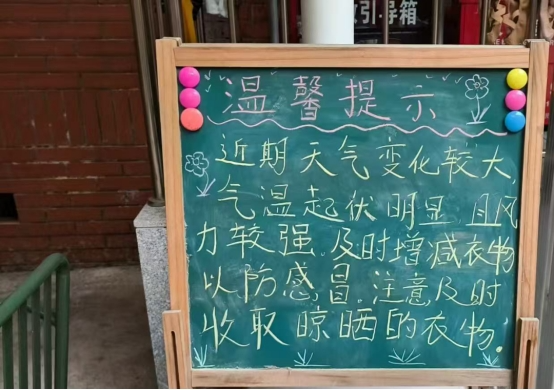 引导箱
温馨提示
近期天气变化较大,
气温起伏明显,且风
力较强。及时增减衣物
以防感冒。注意及时
收取晾晒的衣物.